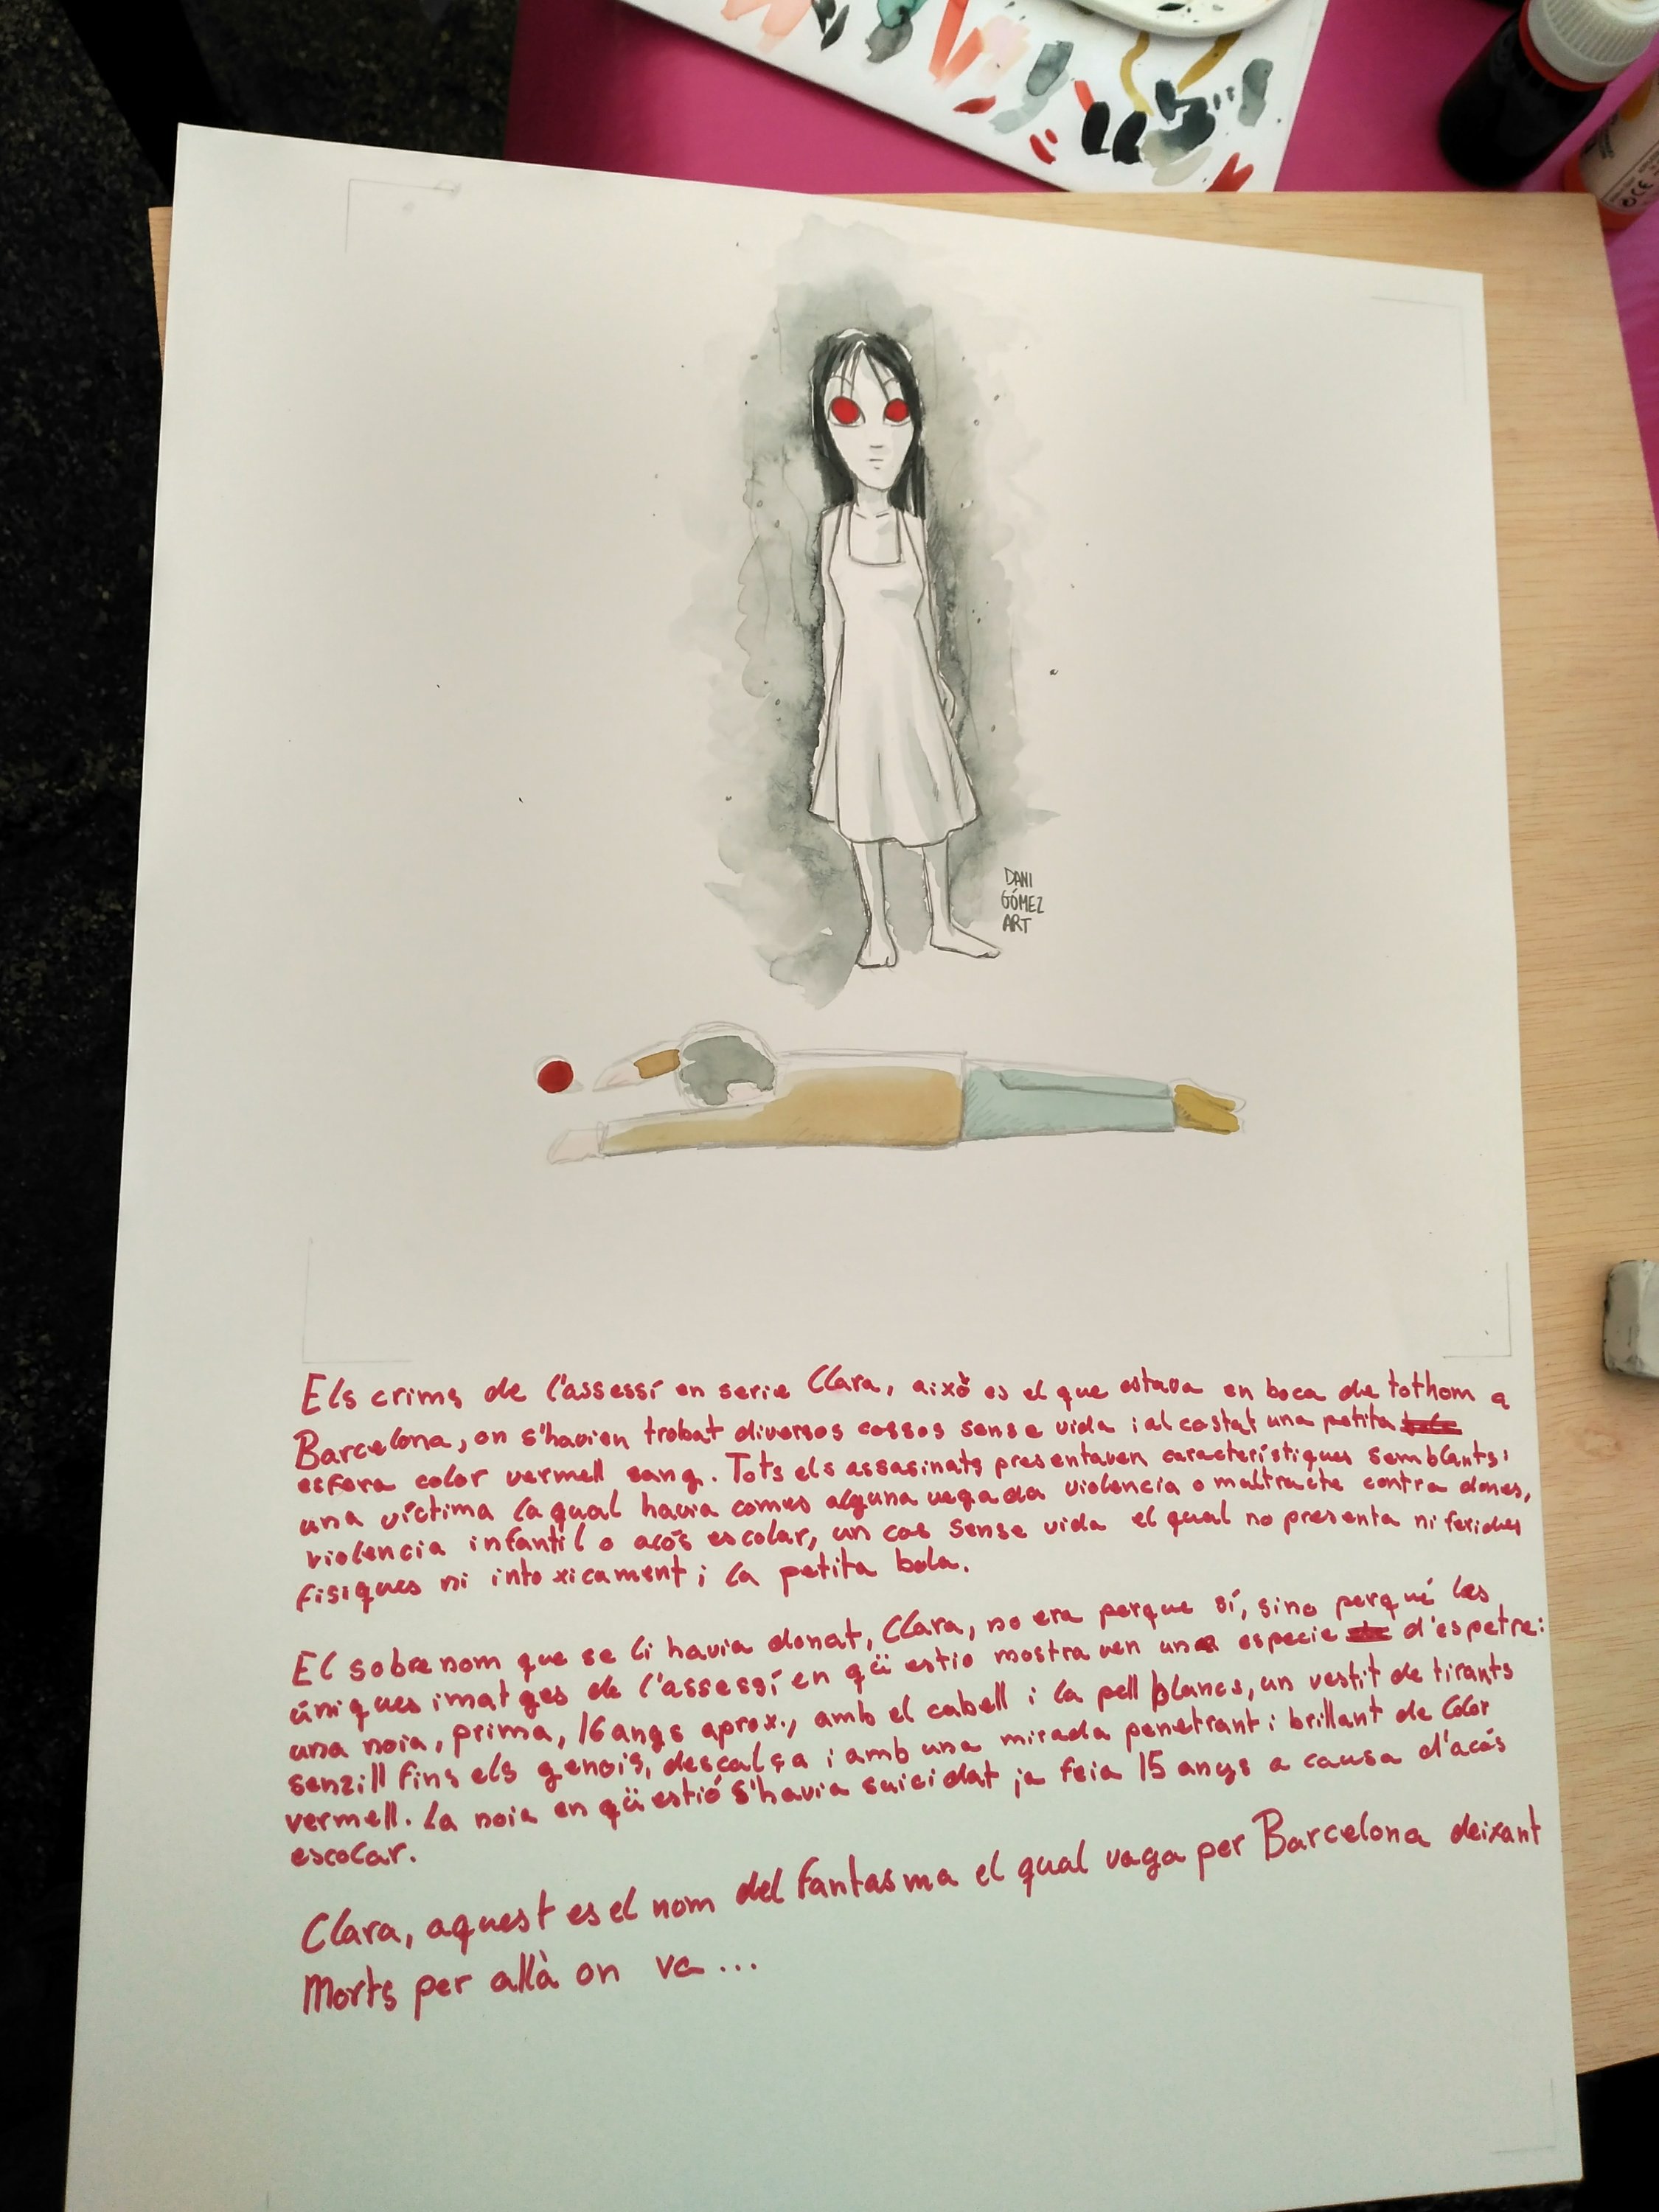 DANI
GÓMEZ
ART
Els crims de l'assessí en serie Clara, això es el que estava en boca de tothom a
Barcelona, on s'havien trobat diversos cossos sense vida i al costat una petita
esfera color vermell sang. Tots els assasinats presentaven característiques semblants:
una víctima la qual havia comes alguna vegada violencia o maltracte contra dones,
violencia infantil o acós escolar, un cos sense vida el qual no presenta ni ferides
fisiques ni intoxicament i la petita bola.
El sobrenom que se li havia donat, Clara, no era perque sí, sino perqué les
úniques imatges de l'assessí en qüestio mostraven una especie d'espetre:
una noia, prima, 16 angs aprox., amb el cabell i la pell blancs, un vestit de tirants
senzill fins els genois, descalça i amb una mirada penetrant i brillant de color
vermell. La noia en qüestió s'havia suicidat ja feia 15 anys a causa d'acós
escolar.
Clara, aquest es el nom del fantasma el qual vaga per Barcelona deixant
Morts per allà on va...
CE